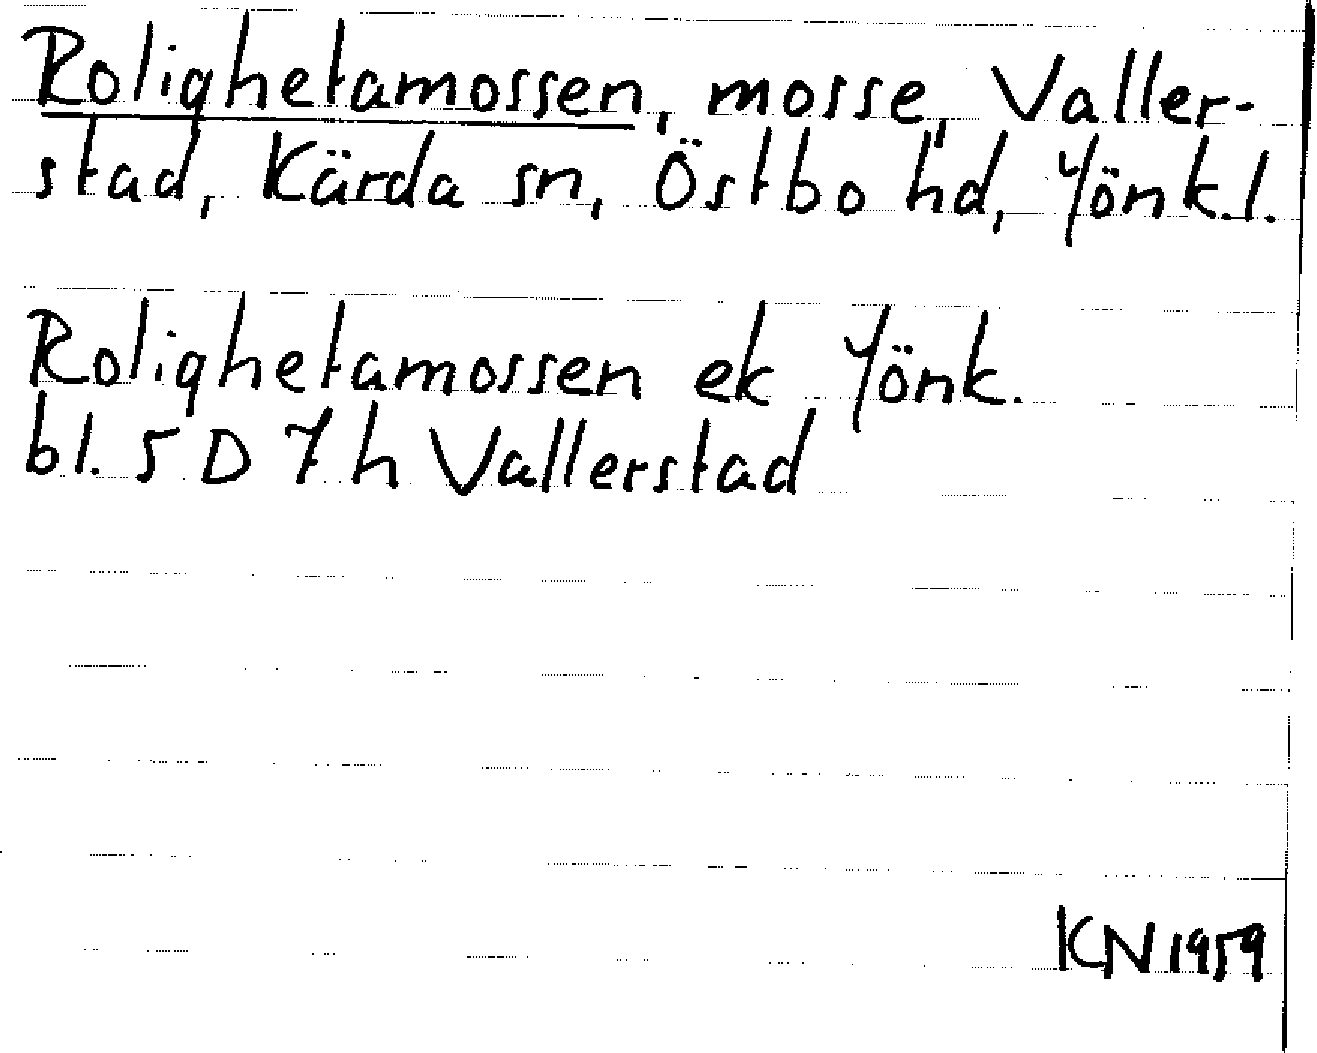 Rolighetamossen, mosse, Valler-
stad, Kärda sn, Östbo hd, Jönk.l.
Rolighetamossen ek Jönk.
bl. 5 D 7 h Vallerstad
KN 1959